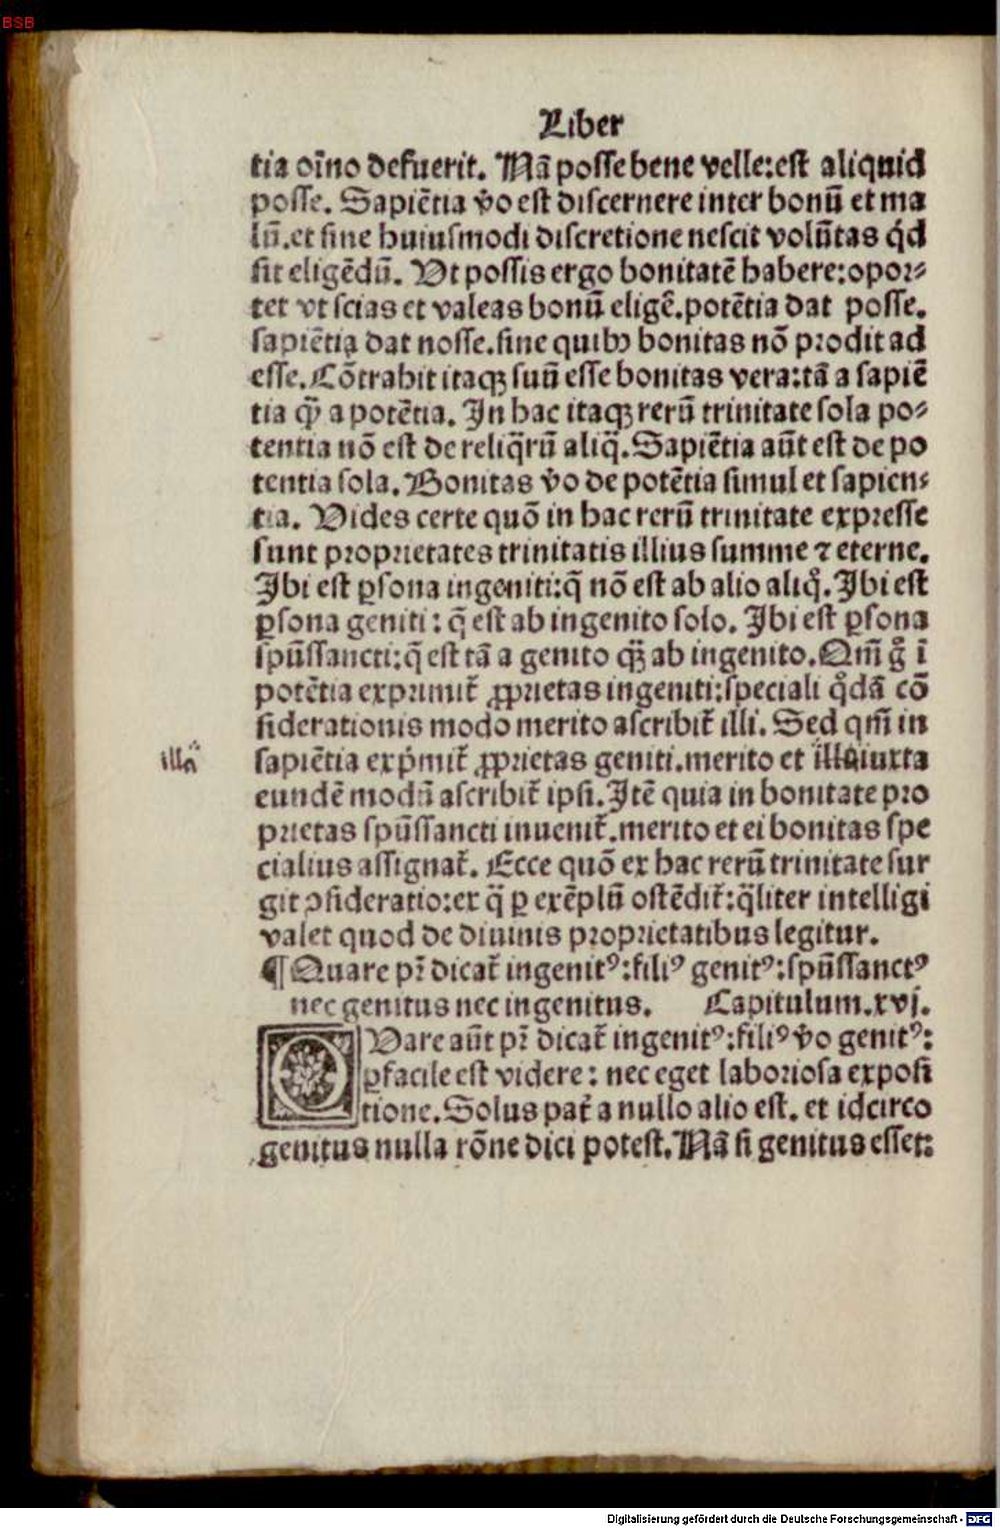 BSB
Liber
tia oĩno defuerit. Nã posse bene velle: est aliquid
posse. Sapiẽtia v̊o est discernere inter bonũ et ma
lũ. et sine huiusmodi discretione nescit volũtas qͥd
sit eligẽdũ. Ut possis ergo bonitatẽ habere: opor⸗
tet vt scias et valeas bonũ eligẽ. potẽtia dat posse.
sapiẽtia dat nosse. sine quibꝰ bonitas nõ prodit ad
esse. Cõtrahit itaqꝫ suũ esse bonitas vera: tã a sapiẽ
tia q̃ꝫ a potẽtia. In hac itaqꝫ rerũ trinitate sola po⸗
tentia nõ est de reliq̃rũ aliq̃. Sapiẽtia aũt est de po
tentia sola. Bonitas v̊o de potẽtia simul et sapien⸗
tia. Vides certe quõ in hac rerũ trinitate expresse
sunt proprietates trinitatis illius summe ⁊ eterne.
Ibi est ꝑsona ingeniti: q̃ nõ est ab alio aliqͦ. Ibi est
ꝑsona geniti: q̃ est ab ingenito solo. Ibi est ꝑsona
spũssancti: q̃ est tã a genito q̃ꝫ ab ingenito. Qm̃ gͦ ĩ
potẽtia exprimit᷑ ꝓprietas ingeniti: speciali qͣdã cõ
siderationis modo merito ascribit᷑ illi. Sed qm̃ in
sapiẽtia exp̃mit᷑ ꝓprietas geniti. merito et illa iuxta
illã
eundẽ modũ ascribit᷑ ipsi. Itẽ quia in bonitate pro
prietas spũssancti inuenit᷑. merito et ei bonitas spe
cialius assignat᷑. Ecce quõ ex hac rerũ trinitate sur
git ↄsideratio: ex q̃ ꝑ exẽplũ ostẽdit᷑: q̃liter intelligi
valet quod de diuinis proprietatibus legitur.
¶ Quare pr̃ dicat᷑ ingenitꝰ: filiꝰ genitꝰ: spũssanctꝰ
nec genitus nec ingenitus. Capitulum. xvj.
QUare aũt pr̃ dicat᷑ ingenitꝰ: filiꝰ v̊o genitꝰ:
ꝑfacile est videre: nec eget laboriosa exposi
tione. Solus pat᷑ a nullo alio est. et idcirco
genitus nulla rõne dici potest. Nã si genitus esset:
Digitalisierung gefördert durch die Deutsche Forschungsgemeinschaft - DFG